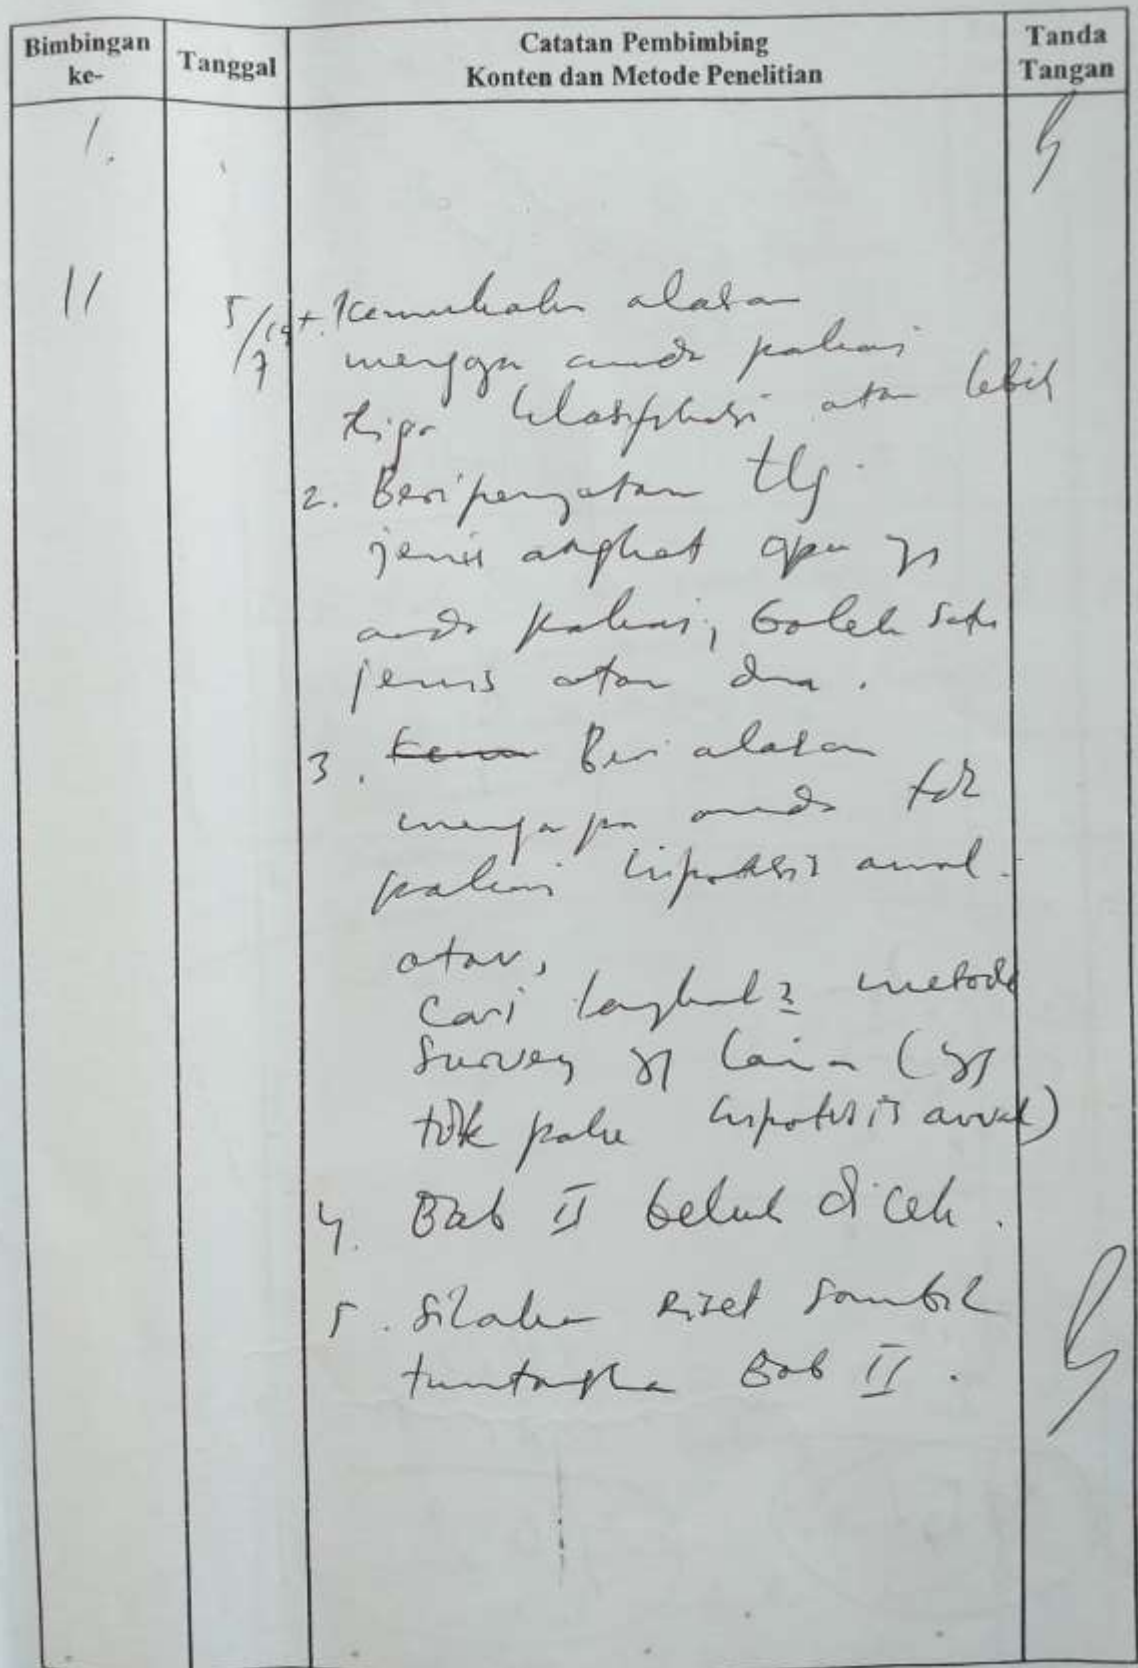 Bimbingan ke-
Tanggal
Catatan Pembimbing
Konten dan Metode Penelitian
Tanda Tangan
1.
II
5/7
Kemukakan alasan
mengapa anda pakai
tiga klasifikasi atau lebih
2. Beri penyataan ttg
jenis angket apa yg
anda pakai, boleh satu
jenis atau dua.
3. Beri alasan
mengapa anda tdk
pakai hipotesis awal.
atau,
Cari langkah2 metode
Survey yg lain (yg
tdk pake hipotesis awal)
4. Bab II belum dicek.
5. Silakan riset sambil
tuntaskan Bab II.